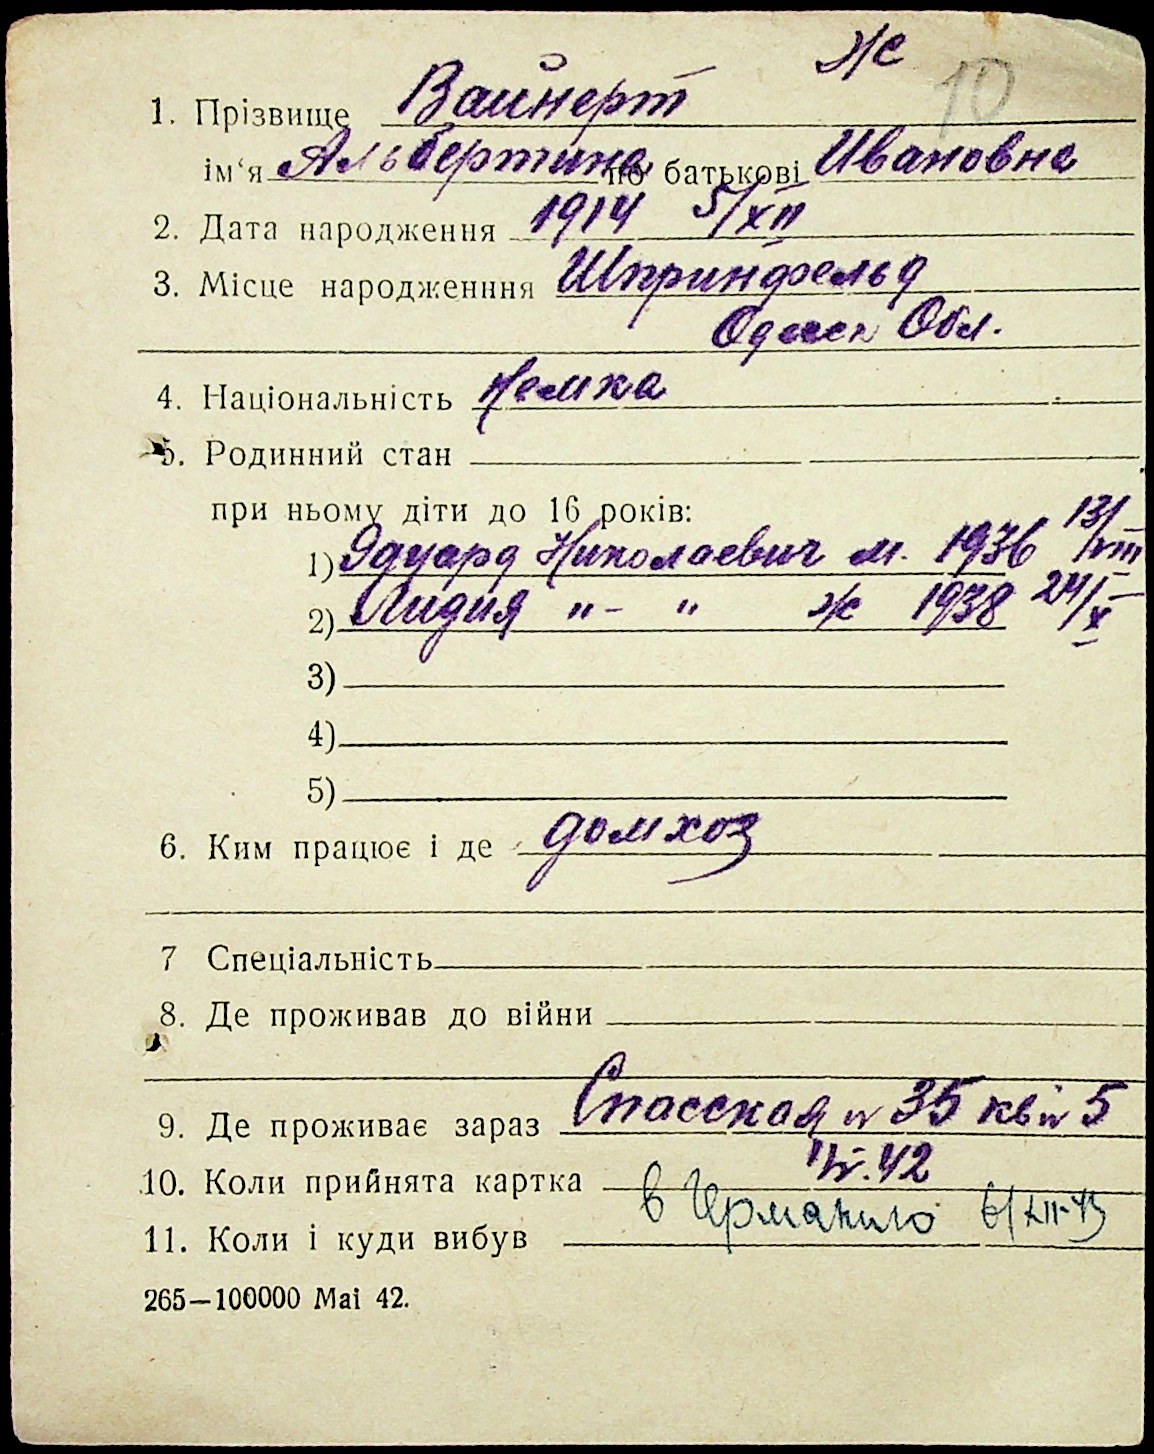 Ж
10
1. Прізвище Вайнерт
ім‘я Альбертина по батькові Ивановна
2. Дата народження 1914 5/XII
3. Місце народженння Шпринфельд
Одесск Обл.
4. Національність Немка
5. Родинний стан
при ньому діти до 16 років:
1) Эдуард Николаевич м. 1936 13/VIII
2) Лидия "-" ж 1938 24/X
3)
4)
5)
6. Ким працює і де домхоз
7 Спеціальність
8. Де проживав до війни
9. Де проживає зараз Спасская № 35 кв № 5
10. Коли прийнята картка .42
в Германию 6/XII-43
11. Коли і куди вибув
265—100000 Mai 42.